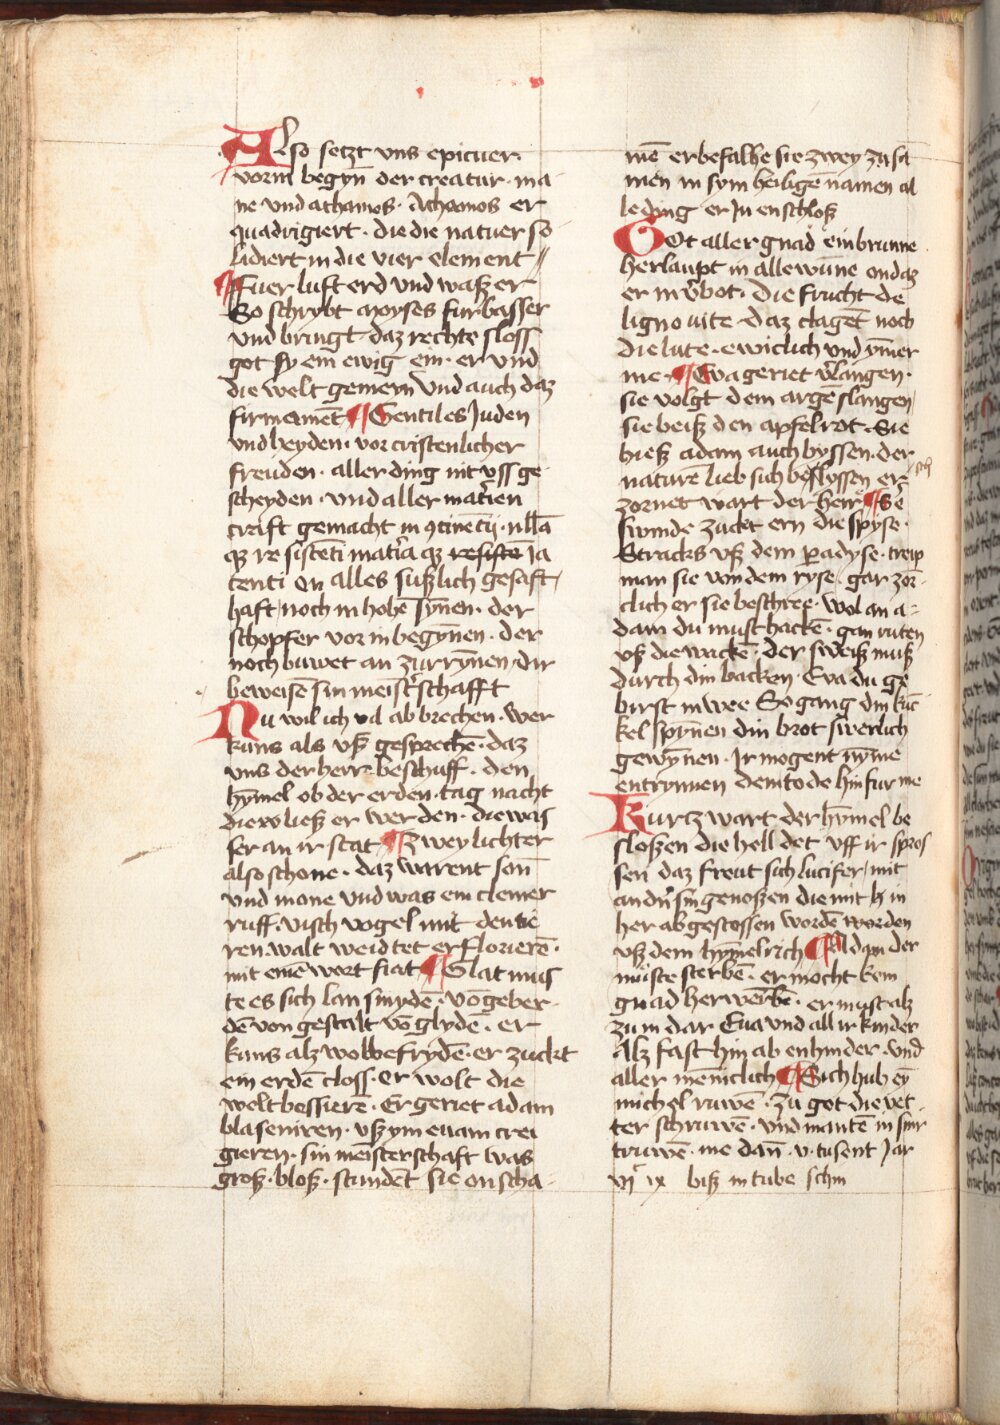 Also setzt uns epicuer
vorm begyn̄ der creatur · ma
ne und athamos · Athomos er
quadrigiert · die die natuer so
lidiert in die vier element
¶ Fuer luft erd und waszer
So schrybt moyses furbasser
und bringt daz rechte sloss
got sy em ewig ein · er und
die welt gemeyn und auch daz
firmamēt ¶ Gentiles Juden
und heyden · vor cristenlicher
freuden · aller ding nit uss ge
scheyden · und aller matr̄ien
craft gemacht in ꝯtinētij · nll̄a
qꝫ resistēti mat̄ia qꝫ Ja
centi On alles suszlich gesaft
haft noch in hohē syn̄en · der
schopfer vor in begyn̄en · der
noch buwet an zurryn̄en dir
beweisē sin meist̄schafft
Nu wil ich vil ab brechen · wer
kuns als usz gesprechē · daz
uns der herr beschuff · den
hȳmel ob der erden · tag nacht
die liesz er werden · die was
ser an ir stat ¶ Zwey lichter
also schone · daz warent son̄
und mone und was em clemer
ruff · visch vogel mit den
ren walt weid tet er florierē ·
mit emē wort fiat ¶ Glat mus
te es sich lan smydē · vō geber
dē von gestalt vō glydē · er
kuns alz wol befrydē · er zuckt
ein erdē closs · Er wolt die
welt bessierē · Er geriet adam
blasenieren · usz ym euam crei
gieren · sin meisterschaft was
grosz · blosz · stundēt sie on scha-
mē er befalhe sie zwey zu sa
men in sym heiligē namen al
le ding er Jn enschlosz
Got aller gnad ein brunne
herlaupt in alle wūne on daz
er in v̄bot · die frucht de
ligno uite daz clagēt noch
die lute · ewiclich und ȳmer
me · ¶ Eva geriet v̄langen ·
sie volgt dem argē slangen
sie beisz den apfel rot · Sie
hiesz adam auch byssen · der
naturē lieb sich beflyssen er-
zornet wart der herr ¶ Ge
swinde zuckt ern die spyse ·
Stracks usz dem p̄adyse · treip
man sie von dem ryse gar zor-
clich er sie beschree · wol an a-
dam du must hackē · gan ruten
usz die wickē · der sweisz musz
durch din backen · Eva du ge
birst in wee So gang din kuc-
kel spyn̄en din brot swerlich
gewyn̄en · Ir mogent nȳme
entrynnen dem tode hin fur me
Kurtz wart der hȳmel be
sloszen die hell det uff ir spros
sen daz freut sich lucifer mit
and̄n sin genoszen die mit in
her abgestossen wordē
usz dem hȳmelrich ¶ Adam der
muste sterbē · er mocht kein
gnad herwerbē · er must alz
zum dar Eua und all ir kinder
Alz fast hin ab enhinder · und
aller mēniclich ¶ Sich hub eȳ
michel ruwē · zu got die vet
ter schruwē · und mantē in sinr
truwē · me dan̄ · v · tusent Jar
vj c ix bisz in tube schin